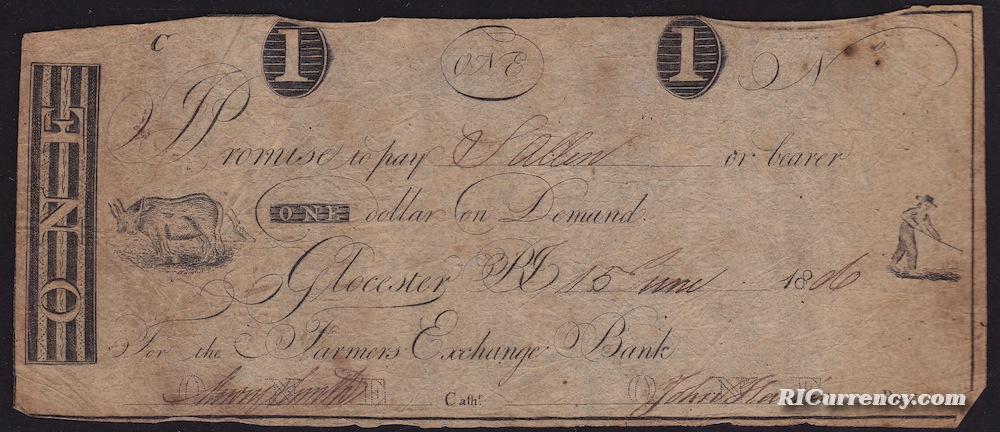 C 1 ONE 1 N
ONE
I Promise to pay S Allen or bearer
ONE dollar on Demand.
Glocester RI 15 June 1806
For the Farmers Exchange Bank
ONE Cash.r ONE
RICurrency.com